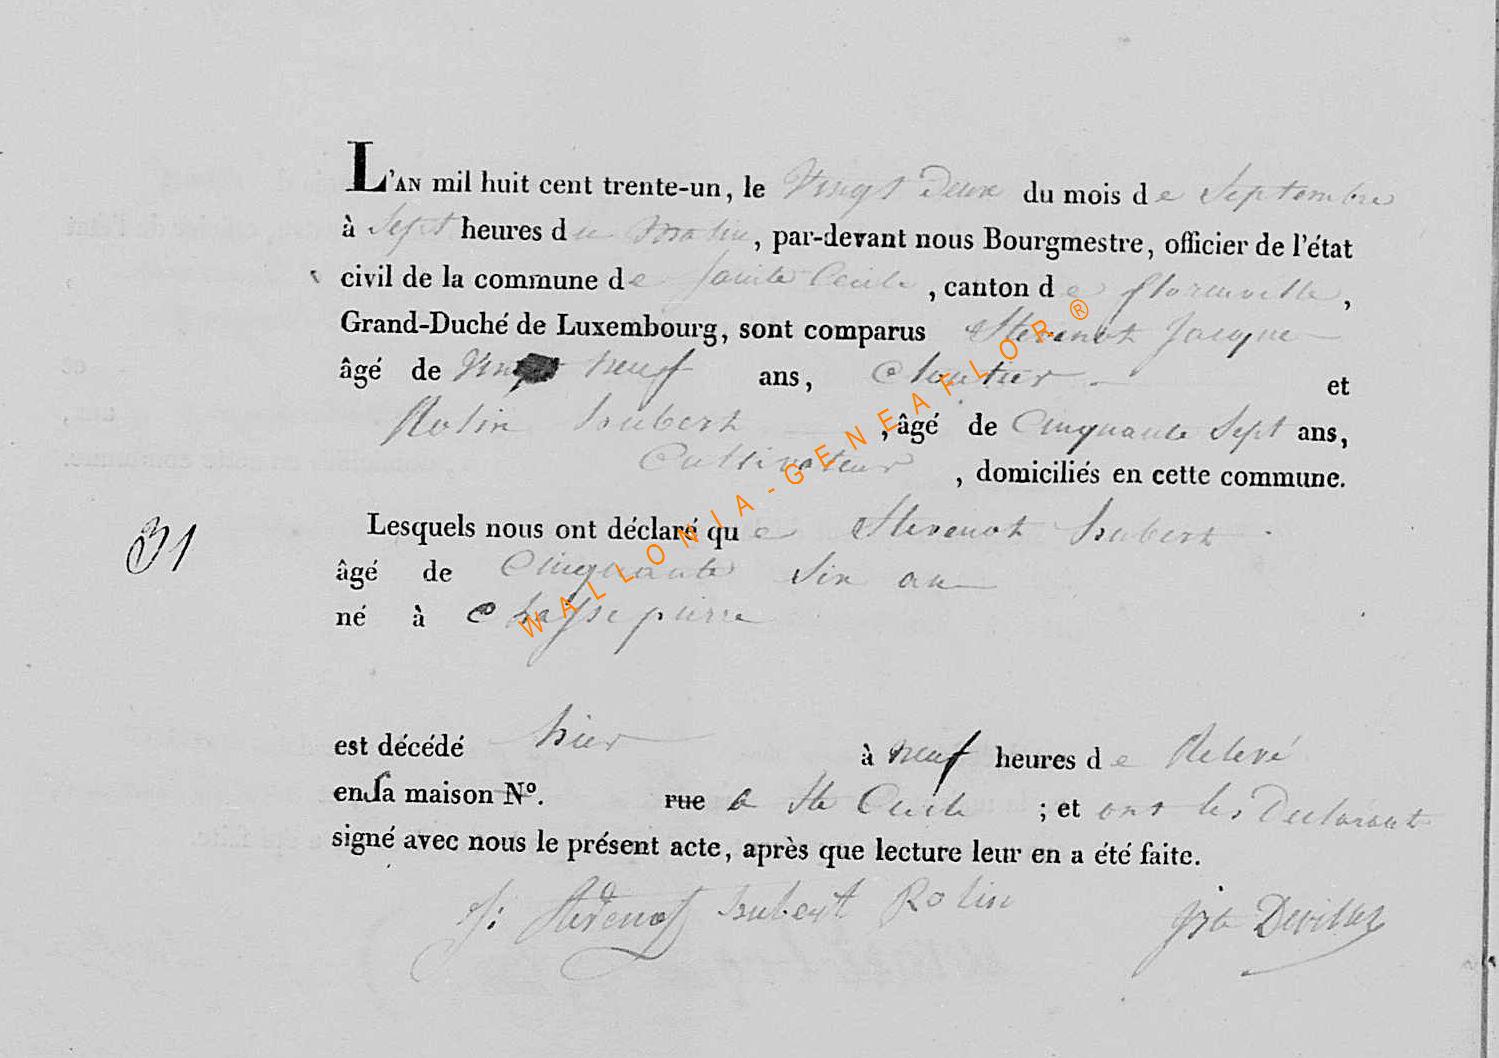 L'AN mil huit cent trente-un, le Vingt Deux du mois de Septembre
à Sept heures du Matin, par-devant nous Bourgmestre, officier de l'état
civil de la commune de Sainte Cecile, canton de florenville,
Grand-Duché de Luxembourg, sont comparus Stevenot Jacque
âgé de Vingt neuf ans, Cloutier et
Rolin hubert, âgé de Cinquante Sept ans,
Cultivateur, domiciliés en cette commune.
31
Lesquels nous ont déclaré que Stevenot hubert
âgé de Cinquante Six an
né à Chassepierre
est décédé hier à neuf heures de Relevé
en sa maison N°. rue a Ste Cecile ; et ont les Declarant
signé avec nous le présent acte, après que lecture leur en a été faite.
J: Stevenot hubert Rolin Devillez
WALLONIA-GENEAFLOR®